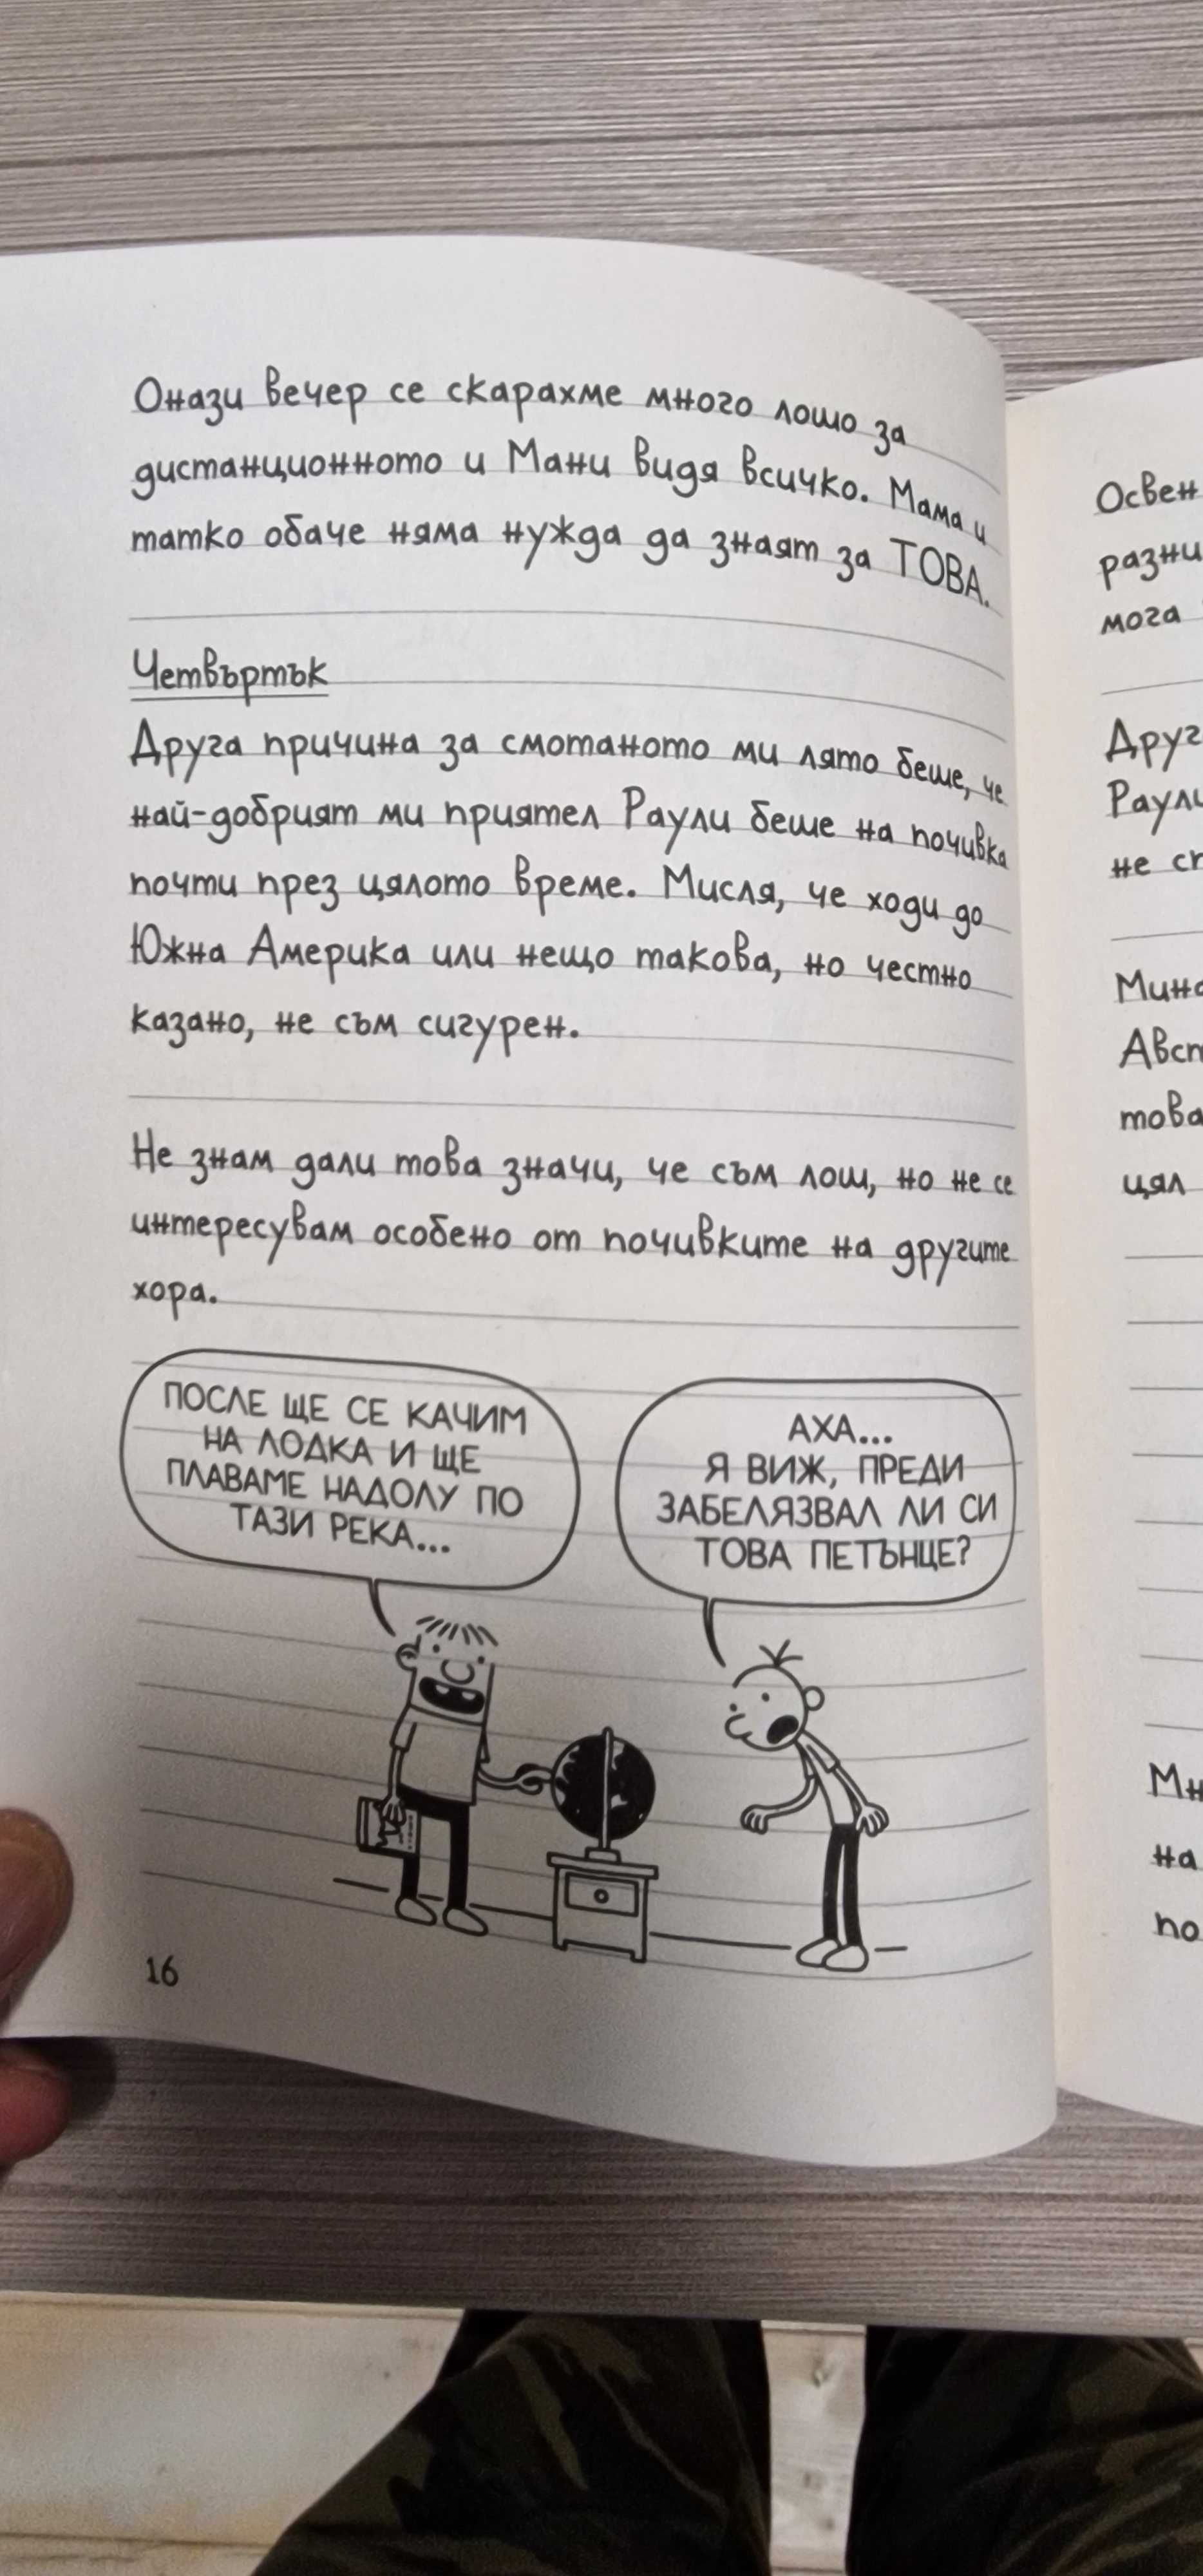 Онази вечер се скарахме много лошо за
дистанционното и Мани видя всичко. Мама и
татко обаче няма нужда да знаят за ТОВА.
Четвъртък
Друга причина за смотаното ми лято беше, че
най-добрият ми приятел Раули беше на почивка
почти през цялото време. Мисля, че ходи до
Южна Америка или нещо такова, но честно
казано, не съм сигурен.
Не знам дали това значи, че съм лош, но не се
интересувам особено от почивките на другите
хора.
ПОСЛЕ ЩЕ СЕ КАЧИМ
НА ЛОДКА И ЩЕ
ПЛАВАМЕ НАДОЛУ ПО
ТАЗИ РЕКА...
АХА...
Я ВИЖ, ПРЕДИ
ЗАБЕЛЯЗВАЛ ЛИ СИ
ТОВА ПЕТЪНЦЕ?
16
Освен
мога
не
цял
на